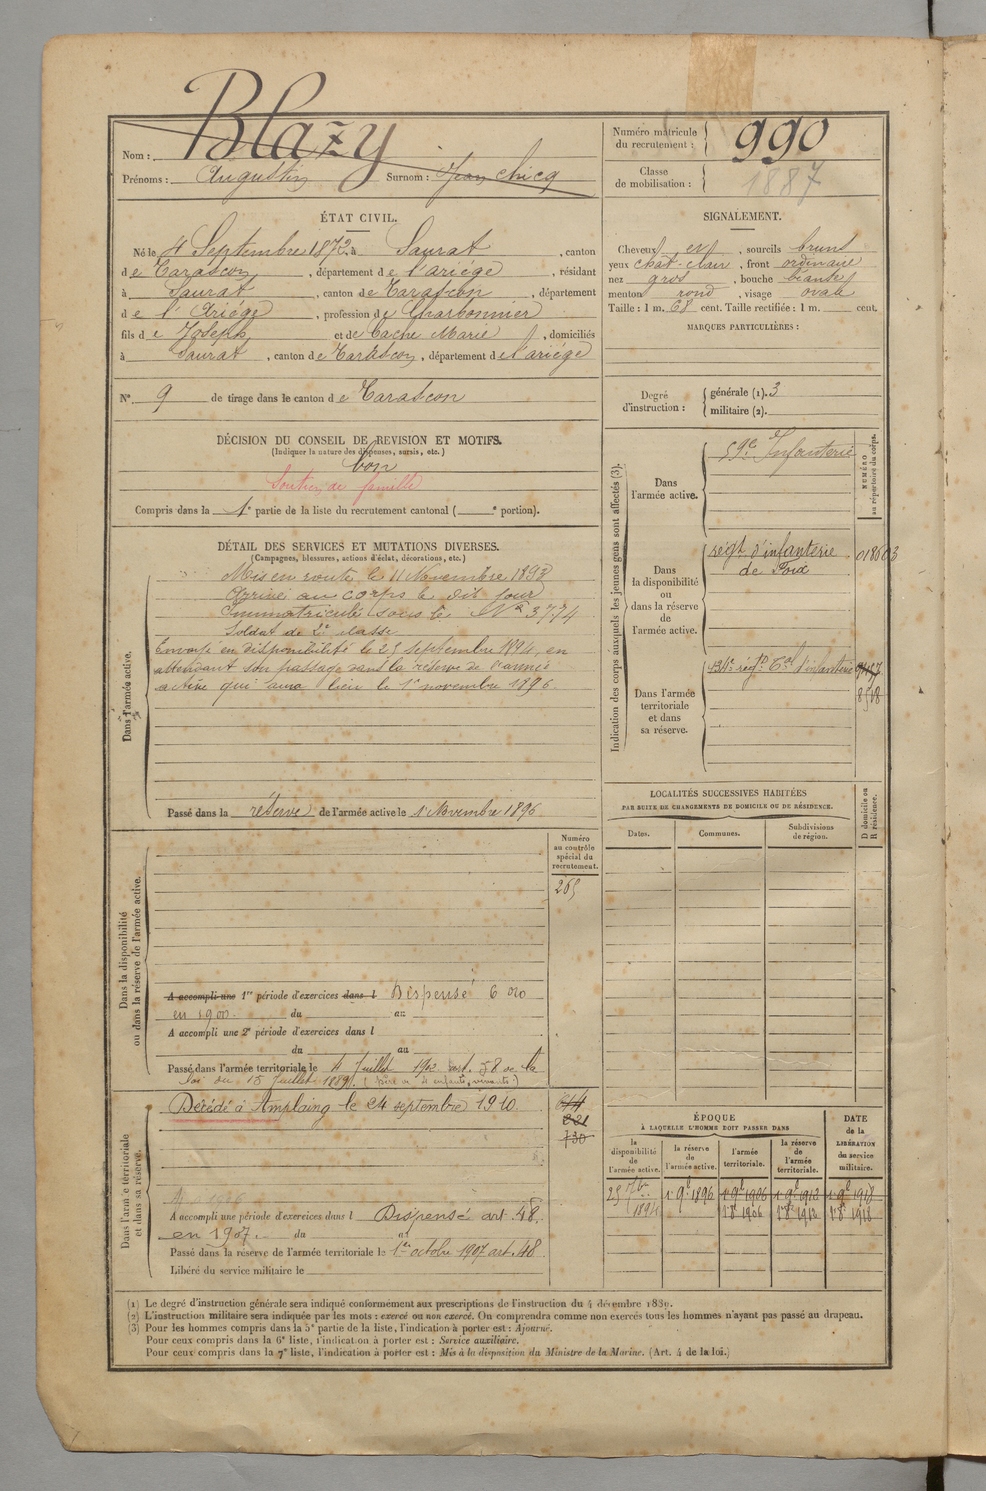 Nom : Blazy
Prénoms : Augustin Surnom : Jean Chicq
Numéro matricule
du recrutement : 990
Classe
de mobilisation : 1887
ÉTAT CIVIL.
Né le 4 Septembre 1872, à Saurat, canton
de Tarascon, département de l'ariège, résidant
à Saurat, canton de Tarascon, département
de l'Ariége, profession de Charbonnier
fils de Joseph et de Cache Marie, domiciliés
à Saurat, canton de Tarascon, département de l'ariége
N° 9 de tirage dans le canton de Tarascon
DÉCISION DU CONSEIL DE REVISION ET MOTIFS.
(Indiquer la nature des dispenses, sursis, etc.)
bon
Soutien de famille
Compris dans la 1e partie de la liste du recrutement cantonal ( e portion).
DÉTAIL DES SERVICES ET MUTATIONS DIVERSES.
(Campagnes, blessures, actions d'éclat, décorations, etc.)
Dans l'armée active.
Mis en route le 11 Novembre 1893
Arrivé au corps le dit jour
Immatriculé sous le N° 3774
Soldat de 2e classe
Envoyé en disponibilité le 25 septembre 1894, en
attendant son passage dans la réserve de l'armée
active qui aura lieu le 1er novembre 1896
Passé dans la réserve de l'armée active le 1er Novembre 1896
Dans la disponibilité
ou dans la réserve de l'armée active.
Numéro
au contrôle
spécial du
recrutement.
265
A accompli une 1re période d'exercices dans l Dispensé
en 1900. du au
A accompli une 2e période d'exercices dans l
du au
Passé dans l'armée territoriale le 4 Juillet 1902 art. 58 de la
loi du 15 Juillet 1889. (père de 4 enfants vivants)
Dans l'armée territoriale
et dans sa réserve.
Décédé à Amplaing le 24 septembre 1910.
730
A accompli une période d'exercices dans l Dispensé art. 48.
en 1907. du au
Passé dans la réserve de l'armée territoriale le 1er octobre 1907 art. 48
Libéré du service militaire le
SIGNALEMENT.
Cheveux et, sourcils bruns
yeux chat-clair, front ordinaire
nez gros, bouche béante
menton rond, visage ovale
Taille : 1 m. 68 cent. Taille rectifiée : 1 m. cent.
MARQUES PARTICULIÈRES :
Degré
d'instruction :
générale (1). 3
militaire (2).
Indication des corps auxquels les jeunes gens sont affectés (3).
NUMÉRO
au répertoire du corps.
Dans
l'armée active.
59e Infanterie
Dans
la disponibilité
ou
dans la réserve
de
l'armée active.
régt d'infanterie
de Foix
018603
Dans l'armée
territoriale
et dans
sa réserve.
134e régt Tal d'infanterie
8508
LOCALITÉS SUCCESSIVES HABITÉES
PAR SUITE DE CHANGEMENTS DE DOMICILE OU DE RÉSIDENCE.
D domicile ou
R résidence.
Dates.
Communes.
Subdivisions
de région.
ÉPOQUE
À LAQUELLE L'HOMME DOIT PASSER DANS
DATE
de la
LIBÉRATION
du service
militaire.
la
disponibilité
de
l'armée active.
la réserve
de
l'armée active.
l'armée
territoriale.
la réserve
de
l'armée
territoriale.
25 7bre 1894
1er 9e 1896
1er 9e 1906
1er 9e 1912
1er 9e 1918
1er 8e 1906
1er 8e 1912
1er 8e 1918
(1) Le degré d'instruction générale sera indiqué conformément aux prescriptions de l'instruction du 4 décembre 1889.
(2) L'instruction militaire sera indiquée par les mots : exercé ou non exercé. On comprendra comme non exercés tous les hommes n'ayant pas passé au drapeau.
(3) Pour les hommes compris dans la 5e partie de la liste, l'indication à porter est : Ajourné.
Pour ceux compris dans la 6e liste, l'indication à porter est : Service auxiliaire.
Pour ceux compris dans la 7e liste, l'indication à porter est : Mis à la disposition du Ministre de la Marine. (Art. 4 de la loi.)